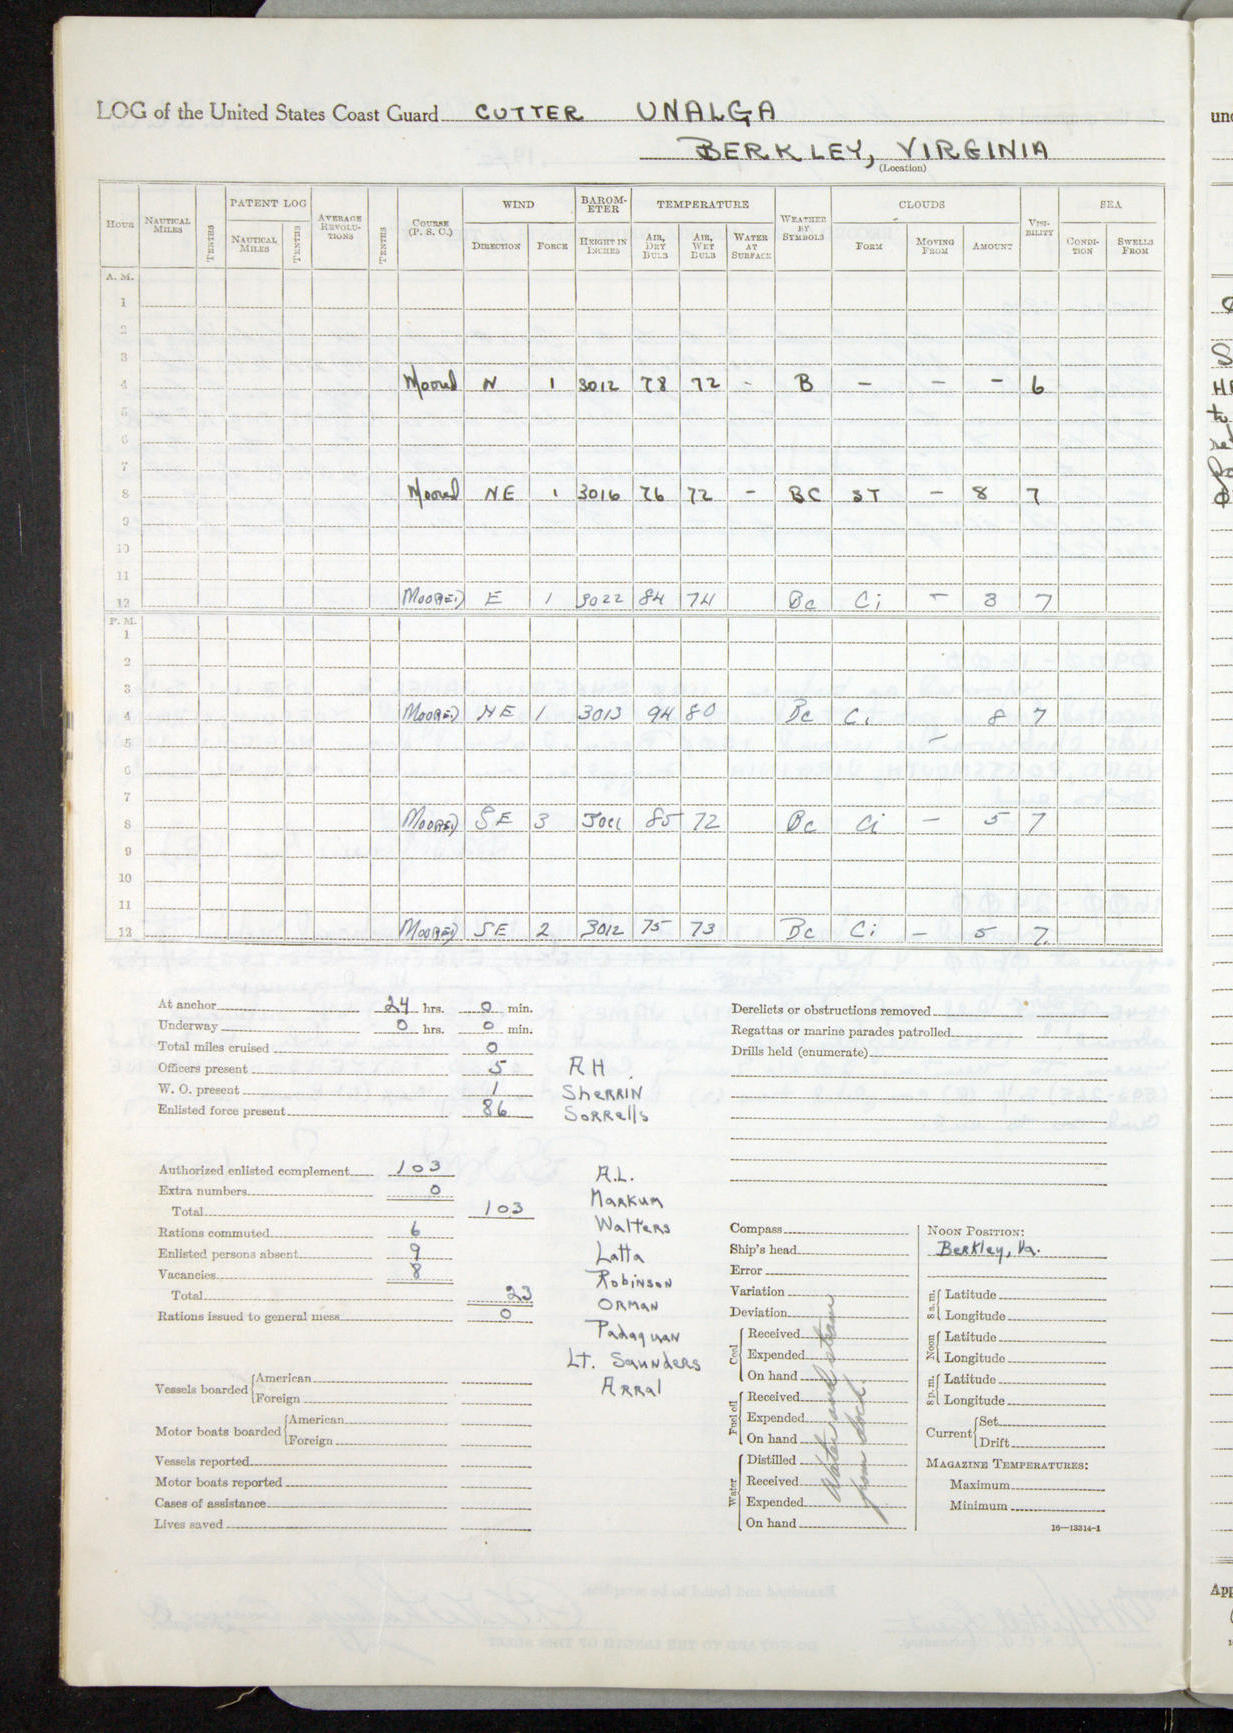 LOG of the United States Coast Guard CUTTER UNALGA
BERKLEY, VIRGINIA
(Location)
HOUR NAUTICAL MILES TENTHS PATENT LOG NAUTICAL MILES TENTHS AVERAGE REVOLU-TIONS TENTHS COURSE (P. S. C.) WIND DIRECTION FORCE BAROM-ETER HEIGHT IN INCHES TEMPERATURE AIR, DRY BULB AIR, WET BULB WATER AT SURFACE WEATHER BY SYMBOLS CLOUDS FORM MOVING FROM AMOUNT VISI-BILITY SEA CONDI-TION SWELLS FROM
A. M.
1
2
3
4 Moored N 1 3012 78 72 - B - - - 6
5
6
7
8 Moored NE 1 3016 76 72 - BC ST - 8 7
9
10
11
12 MOORED E 1 3022 84 74 Bc Ci - 3 7
P. M.
1
2
3
4 MOORED NE 1 3013 94 80 Bc Ci - 8 7
5
6
7
8 MOORED SE 3 3011 85 72 Bc Ci - 5 7
9
10
11
12 MOORED SE 2 3012 75 73 Bc Ci - 5 7.
At anchor 24 hrs. 0 min.
Underway 0 hrs. 0 min.
Total miles cruised 0
Officers present 5
W. O. present 1
Enlisted force present 86
RH.
SHERRIN
SORRElls
Authorized enlisted complement 103
Extra numbers 0
Total 103
Rations commuted 6
Enlisted persons absent 9
Vacancies 8
Total 23
Rations issued to general mess 0
A.L.
MARKUM
WAlTERS
LATTA
RobiNSON
ORMAN
PadaquAN
LT. SAUNdERS
ARRAl
Vessels boarded American
Foreign
Motor boats boarded American
Foreign
Vessels reported
Motor boats reported
Cases of assistance
Lives saved
Derelicts or obstructions removed
Regattas or marine parades patrolled
Drills held (enumerate)
Compass
Ship's head
Error
Variation
Deviation
Coal Received
Expended
On hand
Fuel oil Received
Expended
On hand
Water Distilled
Received
Expended
On hand
Water and steam
from dock.
NOON POSITION:
Berkley, Va.
8 a. m. Latitude
Longitude
Noon Latitude
Longitude
8 p. m. Latitude
Longitude
Current Set
Drift
MAGAZINE TEMPERATURES:
Maximum
Minimum
16—13314-1